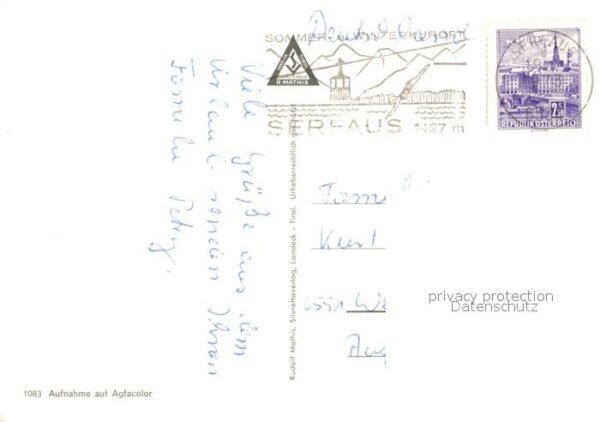 Deutschland
SOMMER- u. WINTERKURORT
R. MATHIS
SERFAUS 1427 m
SERFAUS
2.50
REPUBLIK ÖSTERREICH
Viele Grüße aus dem
Urlaub senden Ihnen
Familie Petry.
Rudolf Mathis, Silvrettaverlag, Landeck - Tirol. Urheberrechtlich geschützt
Famil
Kurt
6551
privacy protection
Datenschutz
1083 Aufnahme auf Agfacolor